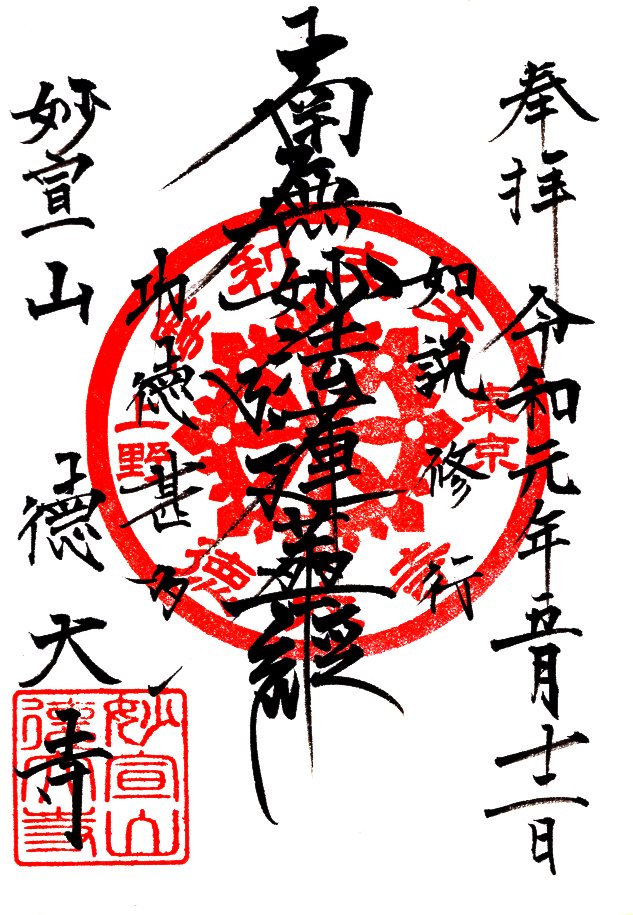 奉拝 令和元年五月十二日
如説修行
南無妙法蓮華経
功徳甚多
妙宣山 徳大寺
東京
上野
妙宣山
徳大寺